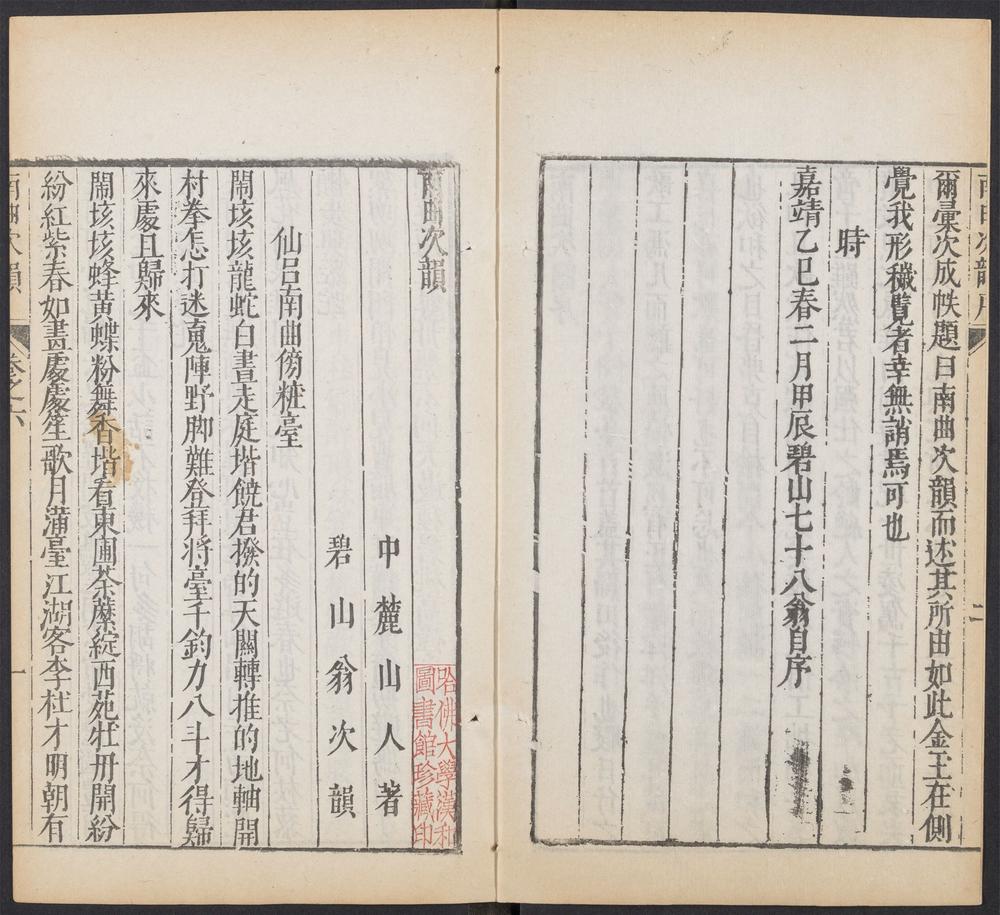 南曲次韻序
二
爾彚次成帙題曰南曲次韻而述其所由如此金玉在側
覺我形穢覽者幸無誚焉可也
時
嘉靖乙巳春二月甲辰碧山七十八翁自序
南曲次韻
哈佛大學漢和
圖書館珍藏印
中麓山人著
碧山翁次韻
仙呂南曲傍粧臺
鬧垓垓龍蛇白晝走庭堦饒君撥的天關轉推的地軸開
村拳怎打迷䰟陣野脚難登拜将臺千鈞力八斗才得歸
來處且歸來
鬧垓垓蜂黃蝶粉舞香堦看東圃荼蘼綻西苑牡丹開紛
紛紅紫春如晝處處笙歌月滿臺江湖客李杜才明朝有
南曲次韻
卷之六
一